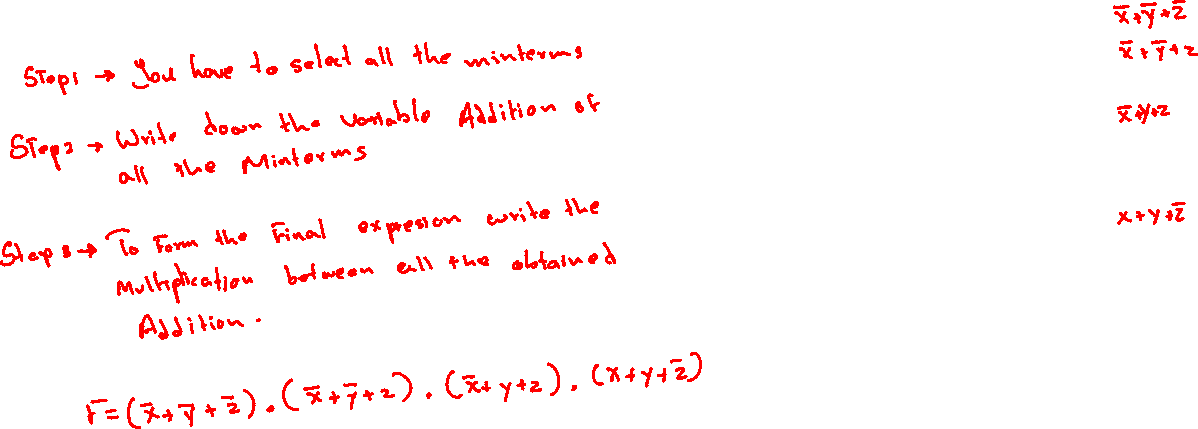 x̄+ȳ+z̄
x̄+ȳ+z
Step1 → You have to select all the minterms
x̄+y+z
Step2 → Write down the variable Addition of
all the Minterms
x+y+z̄
Step3 → To Form the Final expresion write the
Multiplication between all the obtained
Addition.
F=(x̄+ȳ+z̄).(x̄+ȳ+z).(x̄+y+z).(x+y+z̄)